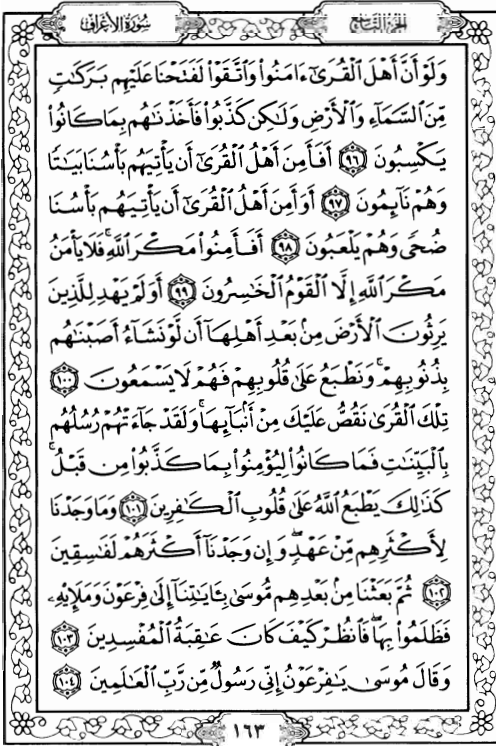 الجزء التاسع
سورة الأعراف
وَلَوْ أَنَّ أَهْلَ ٱلْقُرَىٰٓ ءَامَنُوا۟ وَٱتَّقَوْا۟ لَفَتَحْنَا عَلَيْهِم بَرَكَٰتٍ
مِّنَ ٱلسَّمَآءِ وَٱلْأَرْضِ وَلَٰكِن كَذَّبُوا۟ فَأَخَذْنَٰهُم بِمَا كَانُوا۟
يَكْسِبُونَ ٩٦ أَفَأَمِنَ أَهْلُ ٱلْقُرَىٰٓ أَن يَأْتِيَهُم بَأْسُنَا بَيَٰتًا
وَهُمْ نَآئِمُونَ ٩٧ أَوَأَمِنَ أَهْلُ ٱلْقُرَىٰٓ أَن يَأْتِيَهُم بَأْسُنَا
ضُحًى وَهُمْ يَلْعَبُونَ ٩٨ أَفَأَمِنُوا۟ مَكْرَ ٱللَّهِ ۚ فَلَا يَأْمَنُ
مَكْرَ ٱللَّهِ إِلَّا ٱلْقَوْمُ ٱلْخَٰسِرُونَ ٩٩ أَوَلَمْ يَهْدِ لِلَّذِينَ
يَرِثُونَ ٱلْأَرْضَ مِنۢ بَعْدِ أَهْلِهَآ أَن لَّوْ نَشَآءُ أَصَبْنَٰهُم
بِذُنُوبِهِمْ ۚ وَنَطْبَعُ عَلَىٰ قُلُوبِهِمْ فَهُمْ لَا يَسْمَعُونَ ١٠٠
تِلْكَ ٱلْقُرَىٰ نَقُصُّ عَلَيْكَ مِنْ أَنۢبَآئِهَا ۚ وَلَقَدْ جَآءَتْهُمْ رُسُلُهُم
بِٱلْبَيِّنَٰتِ فَمَا كَانُوا۟ لِيُؤْمِنُوا۟ بِمَا كَذَّبُوا۟ مِن قَبْلُ ۚ
كَذَٰلِكَ يَطْبَعُ ٱللَّهُ عَلَىٰ قُلُوبِ ٱلْكَٰفِرِينَ ١٠١ وَمَا وَجَدْنَا
لِأَكْثَرِهِم مِّنْ عَهْدٍ ۖ وَإِن وَجَدْنَآ أَكْثَرَهُمْ لَفَٰسِقِينَ
١٠٢ ثُمَّ بَعَثْنَا مِنۢ بَعْدِهِم مُّوسَىٰ بِـَٔايَٰتِنَآ إِلَىٰ فِرْعَوْنَ وَمَلَإِي۟هِۦ
فَظَلَمُوا۟ بِهَا ۖ فَٱنظُرْ كَيْفَ كَانَ عَٰقِبَةُ ٱلْمُفْسِدِينَ ١٠٣
وَقَالَ مُوسَىٰ يَٰفِرْعَوْنُ إِنِّى رَسُولٌ مِّن رَّبِّ ٱلْعَٰلَمِينَ ١٠٤
١٦٣